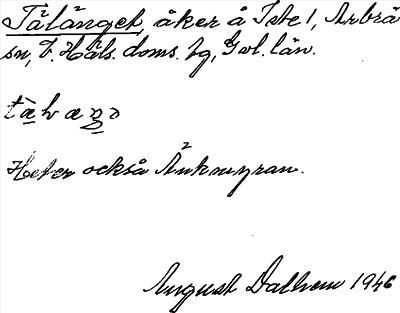 Tålånget, åker å Iste 1, Arbrå
sn, V. Häls. doms. hg, Gvl. län.
Heter också Änkmyran.
August Dalhem 1946